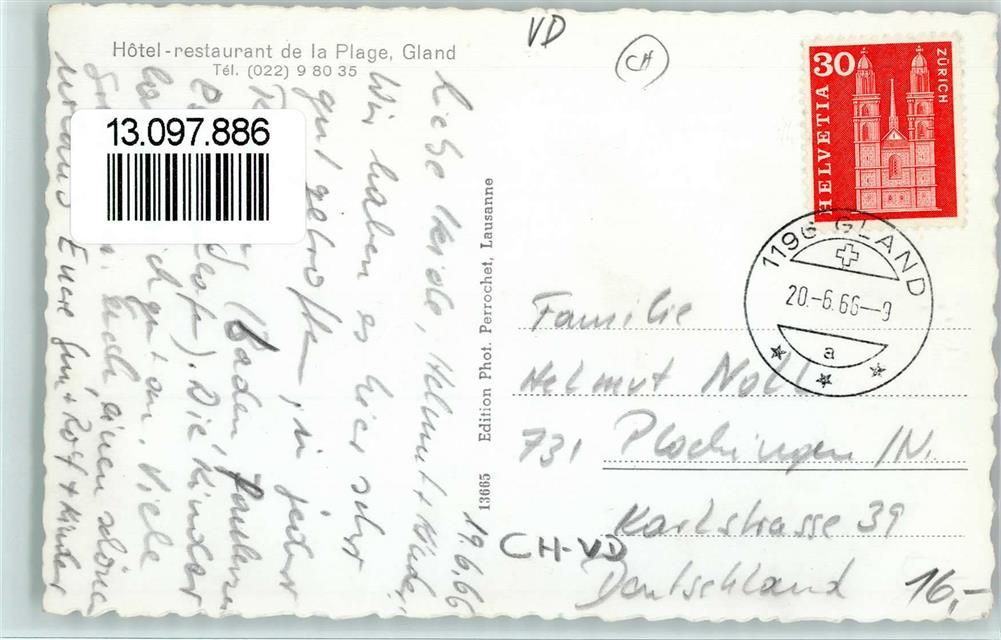 VD
CH
Hôtel-restaurant de la Plage, Gland
Tél. (022) 9 80 35
13.097.886
30
HELVETIA
ZÜRICH
1196 GLAND
20.-6.66--9
a
Edition Phot. Perrochet, Lausanne
13665
19.6.66
Liebe Helmut + Kinder,
Wir haben es hier sehr
gut getroffen, in jeder
(Baden,
Boot). Die Kinder
Viele
Euch einen schönen
Urlaub Eure Gun + Rolf + Kinder
Familie
Helmut Noll
731 Plochingen /N.
Karlstrasse 39
Deutschland
CH-VD
16,-